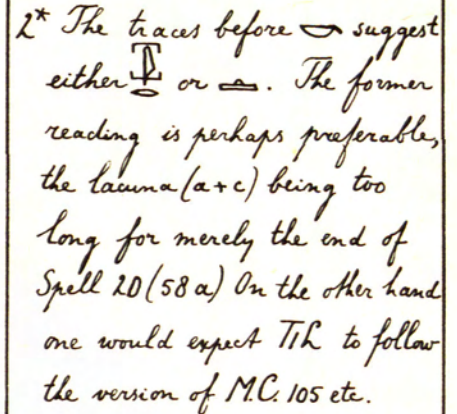 2* The traces before suggest
either or . The former
reading is perhaps preferable,
the lacuna (a+c) being too
long for merely the end of
Spell 20 (58a) On the other hand
one would expect T1L to follow
the version of M.C. 105 etc.